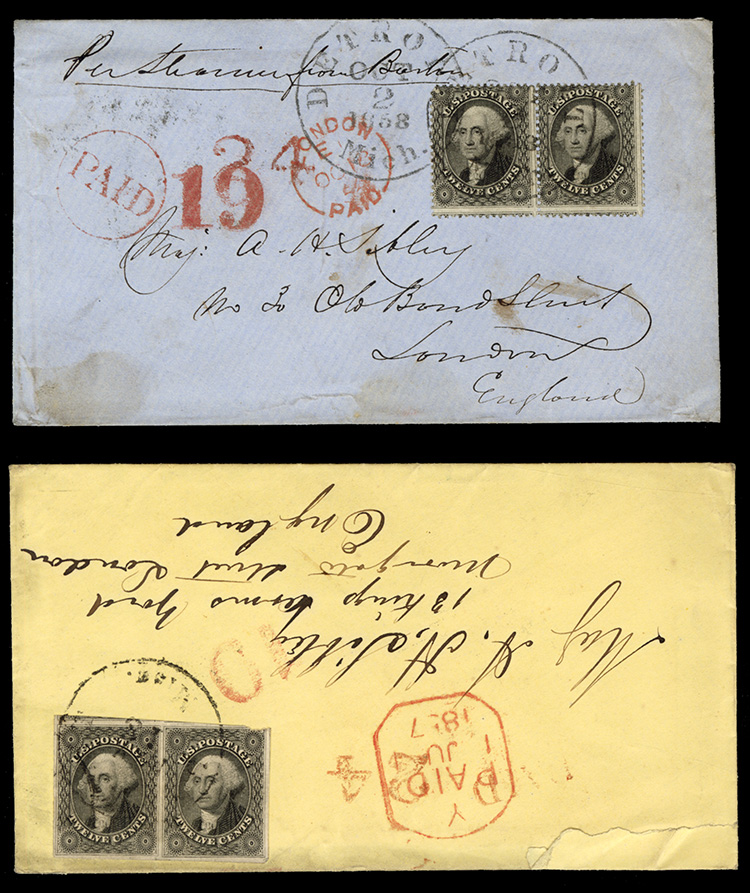 Per Steamer from Boston
DETROIT
OCT
2
1858
Mich.
DETRO
U.S. POSTAGE
TWELVE CENTS
U.S. POSTAGE
TWELVE CENTS
PAID
24
19
LONDON
PAID
Maj: A. H. Sibley
No 30 Old Bond Street
London
England
Maj A. H. Sibley
13 Kings Arms Yard
Moorgate Street London
England
PAID
JU
1857
24
U.S. POSTAGE
TWELVE CENTS
U.S. POSTAGE
TWELVE CENTS